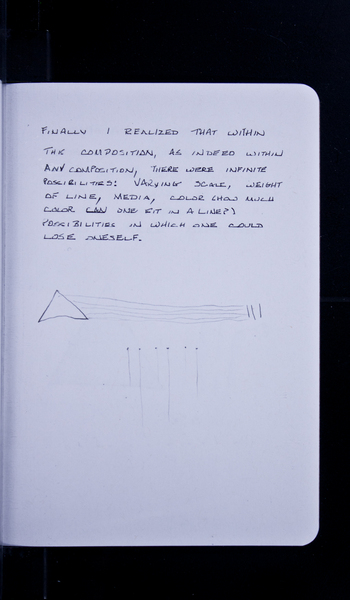 FINALLY I REALIZED THAT WITHIN
THIS COMPOSITION, AS INDEED WITHIN
ANY COMPOSITION, THERE WERE INFINITE
POSSIBILITIES: VARYING SCALE, WEIGHT
OF LINE, MEDIA, COLOR (HOW MUCH
COLOR CAN ONE FIT IN A LINE?)
POSSIBILITIES IN WHICH ONE COULD
LOSE ONESELF.